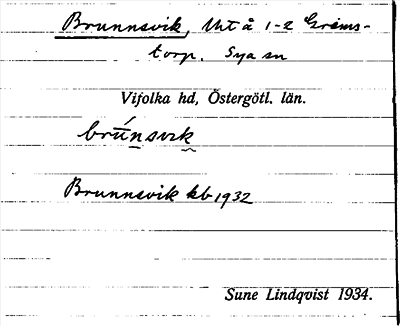 Brunnsvik, Uht å 1-2 Grims-
torp. Sya sn
Vifolka hd, Östergötl. län.
brúnsvik
Brunnsvik kb 1932
Sune Lindqvist 1934.